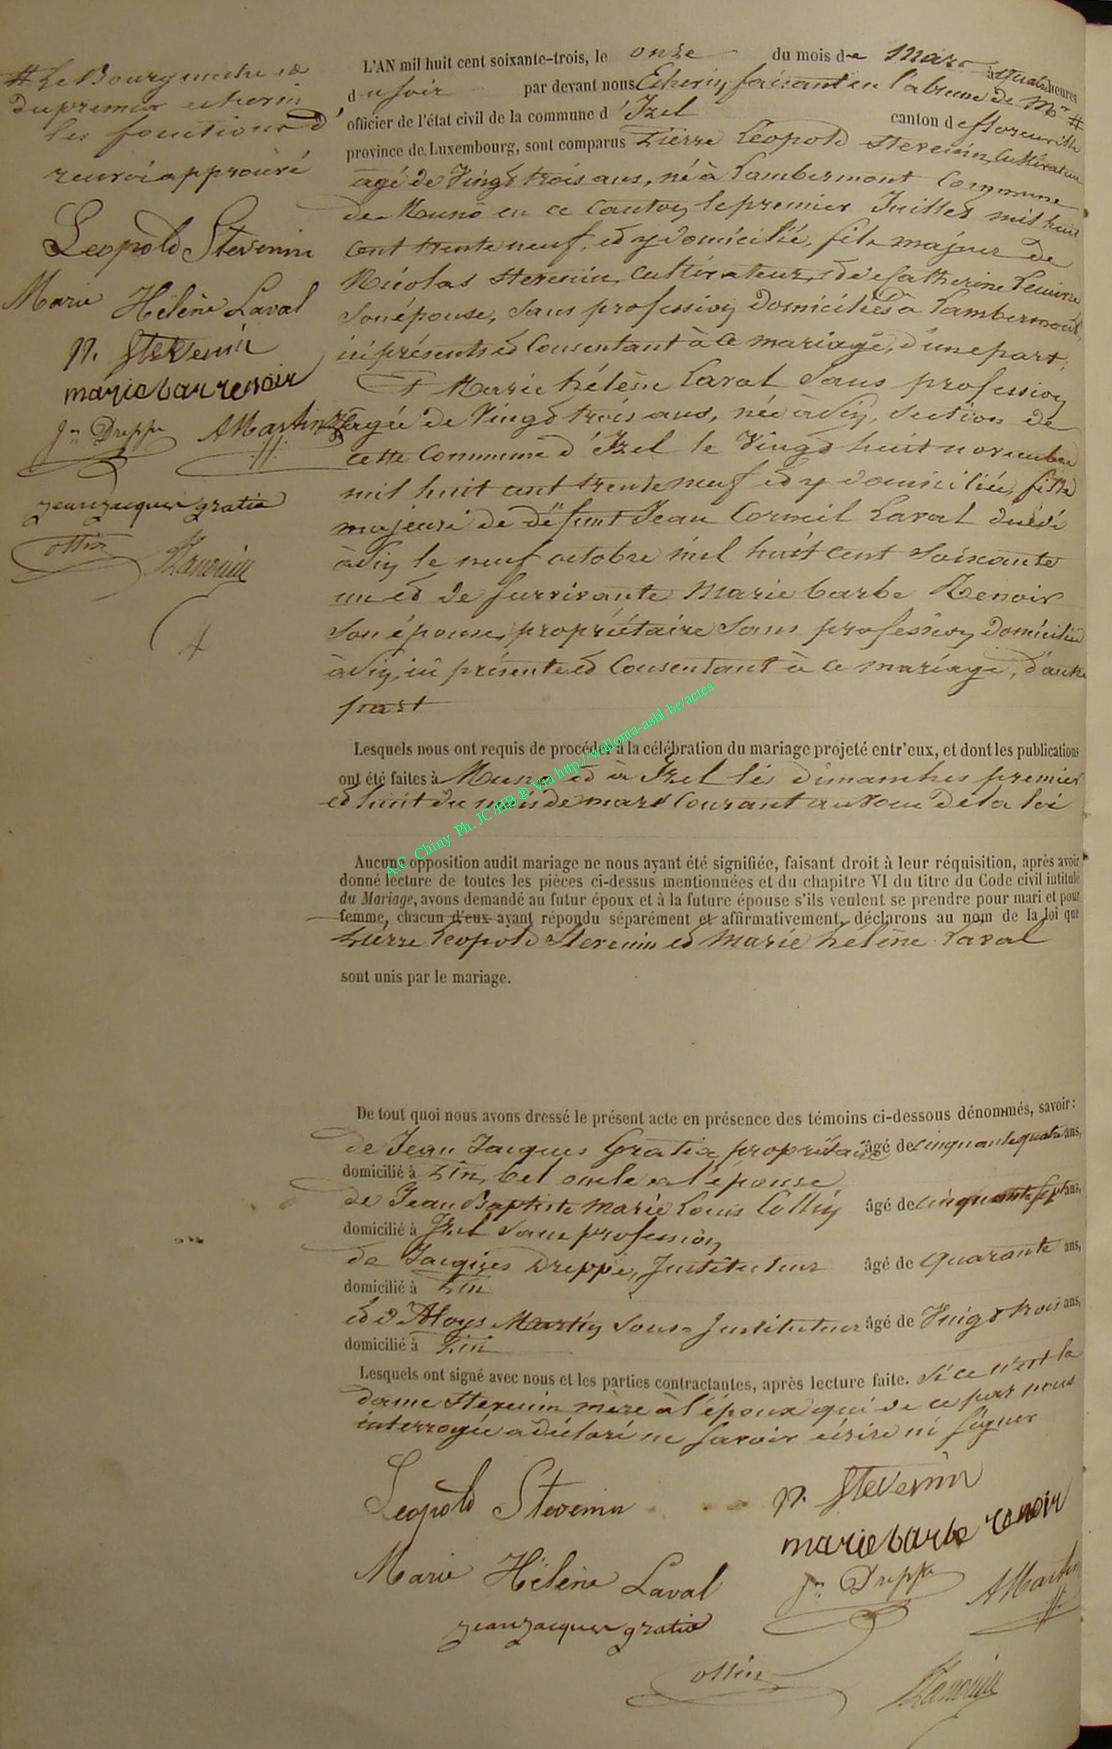 # Le Bourgmestre et
du premier echevin
les fonctions d'
renvoi approuvé
Leopold Stevenin
Marie Hélène Laval
n. Stevenin
marie barbe renoir
Jn Dreppe AMartin
jean jacques gratia
L'AN mil huit cent soixante-trois, le onze du mois de Mars à quatre heures
du soir par devant nous Echevin, faisant en l'absence de Mr #
officier de l'état civil de la commune d'Izel canton de florenville
province de Luxembourg, sont comparus Pierre Leopold Stevenin, Cultivateur
agé de Vingt trois ans, né à Lambermont Commune
de Muno en ce Canton, le premier Juillet mil huit
cent trente neuf, et y domicilié, fils majeur de
Nicolas Stevenin, cultivateur, et de Catherine
Son épouse, Sans profession domiciliés à Lambermont,
ici présents et Consentant à ce mariage, d'une part,
Et Marie hélène Laval Sans profession
agée de Vingt trois ans, née à Pin, section de
cette Commune d'Izel le Vingt huit novembre
mil huit cent trente neuf et y domiciliée, fille
majeure de défunt Jean Corneil Laval décédé
à Pin le neuf octobre mil huit cent Soixante
un et de survivante Marie barbe Renoir
Son épouse, propriétaire Sans profession, domiciliée
à Pin, ici présente et Consentant à ce mariage, d'autre
part
Lesquels nous ont requis de procéder à la célébration du mariage projeté entr'eux, et dont les publications
ont été faites à Muno et à Izel les dimanches premier
et huit du mois de mars Courant au vœu de la loi
A.C. Chiny Ph. JC HB ® via http://wallonia-asbl.be/actes
Aucune opposition audit mariage ne nous ayant été signifiée, faisant droit à leur réquisition, après avoir
donné lecture de toutes les pièces ci-dessus mentionnées et du chapitre VI du titre du Code civil intitulé
du Mariage, avons demandé au futur époux et à la future épouse s'ils veulent se prendre pour mari et pour
femme, chacun d'eux ayant répondu séparément et affirmativement, déclarons au nom de la loi que
Pierre Leopold Stevenin et Marie hélène Laval
sont unis par le mariage.
De tout quoi nous avons dressé le présent acte en présence des témoins ci-dessous dénommés, savoir :
de Jean Jacques Gratia propriétaire âgé de cinquante quatre ans,
domicilié à Pin, bel oncle à l'épouse
de Jean Baptiste Marie Louis Collin âgé de cinquante sept ans,
domicilié à Izel Sans profession
de Jacques Dreppe, Instituteur âgé de quarante ans,
domicilié à Pin
et d'Aloys Martin Sous-Instituteur âgé de Vingt trois ans,
domicilié à Pin
Lesquels ont signé avec nous et les parties contractantes, après lecture faite. Si ce n'est la
dame Stevenin mère à l'époux qui de ce par nous
interrogée a déclaré ne savoir écrire ni signer
Leopold Stevenin n. Stevenin
marie barbe renoir
Marie Hélène Laval Jn Dreppe AMartin
jean jacques gratia